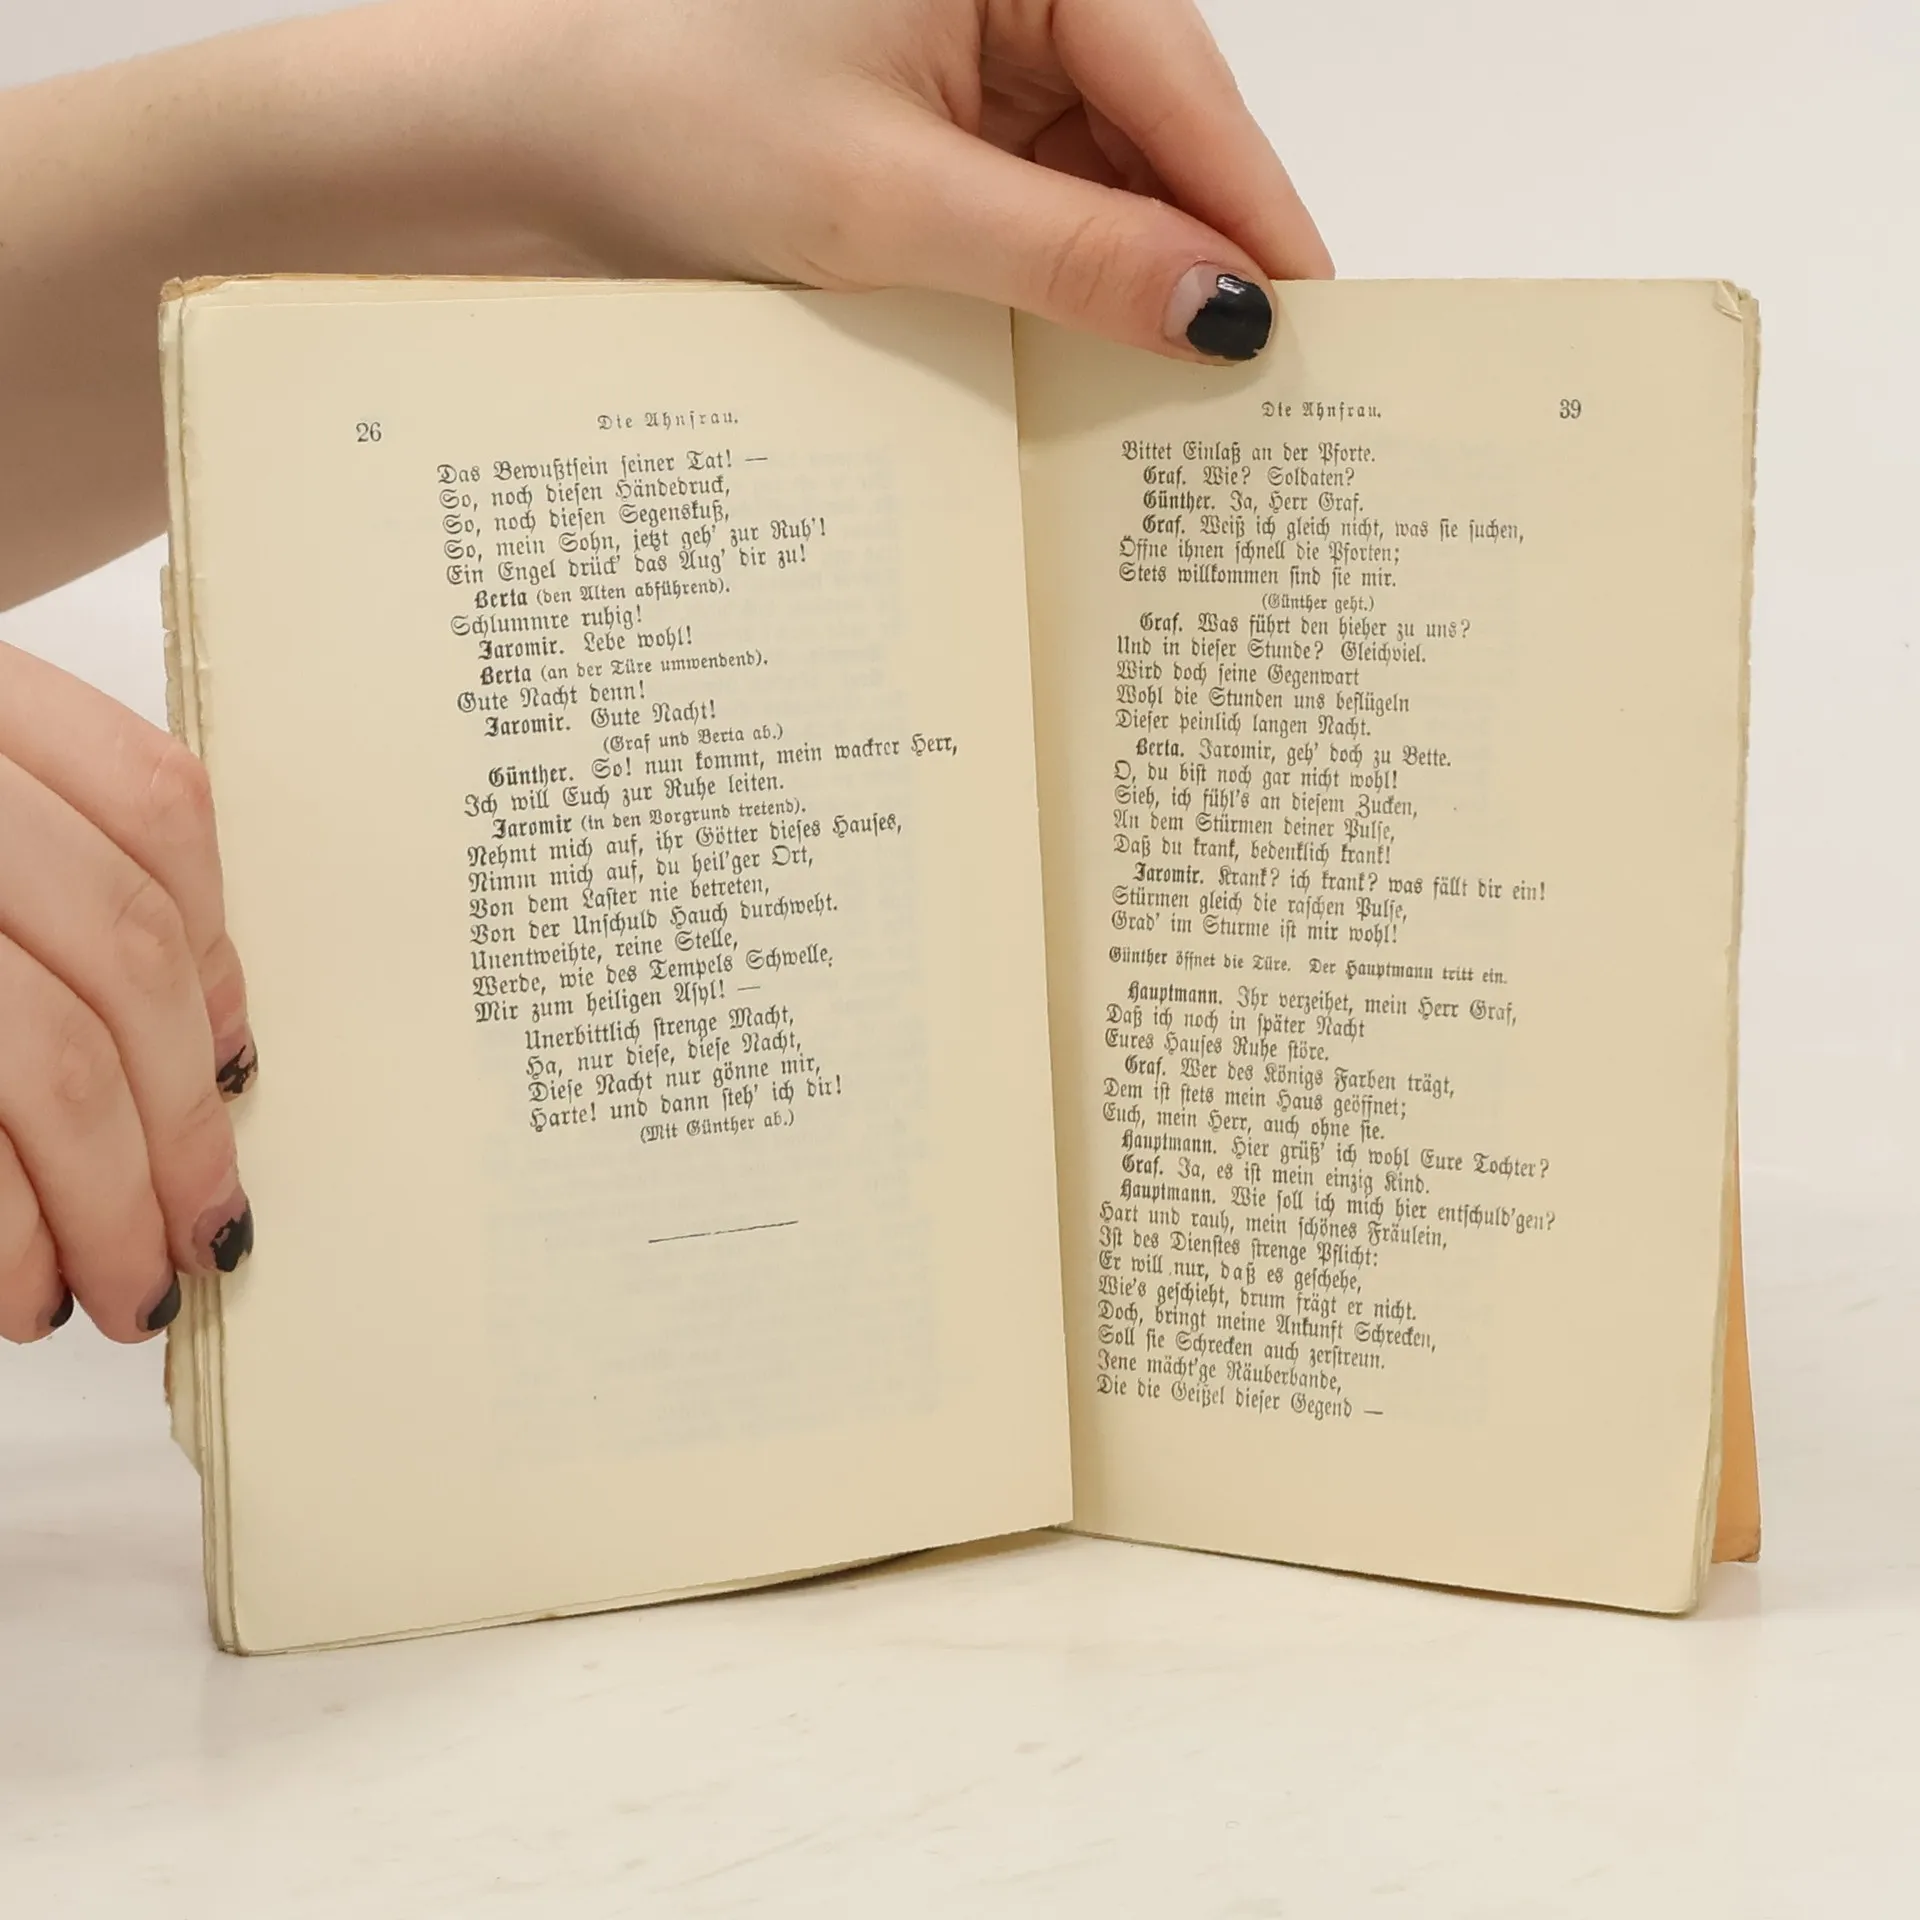 26
Die Ahnfrau.
Das Bewußtsein seiner Tat! —
So, noch diesen Händedruck,
So, noch diesen Segenskuß,
So, mein Sohn, jetzt geh' zur Ruh'!
Ein Engel drück' das Aug' dir zu!
Berta (den Alten abführend).
Schlummre ruhig!
Jaromir. Lebe wohl!
Berta (an der Türe umwendend).
Gute Nacht denn!
Jaromir. Gute Nacht!
(Graf und Berta ab.)
Günther. So! nun kommt, mein wackrer Herr,
Ich will Euch zur Ruhe leiten.
Jaromir (in den Vorgrund tretend).
Nehmt mich auf, ihr Götter dieses Hauses,
Nimm mich auf, du heil'ger Ort,
Von dem Laster nie betreten,
Von der Unschuld Hauch durchweht.
Unentweihte, reine Stelle,
Werde, wie des Tempels Schwelle,
Mir zum heiligen Asyl! —
Unerbittlich strenge Macht,
Ha, nur diese, diese Nacht,
Diese Nacht nur gönne mir,
Harte! und dann steh' ich dir!
(Mit Günther ab.)
Die Ahnfrau.
39
Bittet Einlaß an der Pforte.
Graf. Wie? Soldaten?
Günther. Ja, Herr Graf.
Graf. Weiß ich gleich nicht, was sie suchen,
Öffne ihnen schnell die Pforten;
Stets willkommen sind sie mir.
(Günther geht.)
Graf. Was führt den hieher zu uns?
Und in dieser Stunde? Gleichviel.
Wird doch seine Gegenwart
Wohl die Stunden uns beflügeln
Dieser peinlich langen Nacht.
Berta. Jaromir, geh' doch zu Bette.
O, du bist noch gar nicht wohl!
Sieh, ich fühl's an diesem Zucken,
An dem Stürmen deiner Pulse,
Daß du krank, bedenklich krank!
Jaromir. Krank? ich krank? was fällt dir ein!
Stürmen gleich die raschen Pulse,
Grad' im Sturme ist mir wohl!
Günther öffnet die Türe. Der Hauptmann tritt ein.
Hauptmann. Ihr verzeihet, mein Herr Graf,
Daß ich noch in später Nacht
Eures Hauses Ruhe störe.
Graf. Wer des Königs Farben trägt,
Dem ist stets mein Haus geöffnet;
Euch, mein Herr, auch ohne sie.
Hauptmann. Hier grüß' ich wohl Eure Tochter?
Graf. Ja, es ist mein einzig Kind.
Hauptmann. Wie soll ich mich hier entschuld'gen?
Hart und rauh, mein schönes Fräulein,
Ist des Dienstes strenge Pflicht:
Er will nur, daß es geschehe,
Wie's geschieht, drum frägt er nicht.
Doch, bringt meine Ankunft Schrecken,
Soll sie Schrecken auch zerstreun.
Jene mächt'ge Räuberbande,
Die die Geißel dieser Gegend —